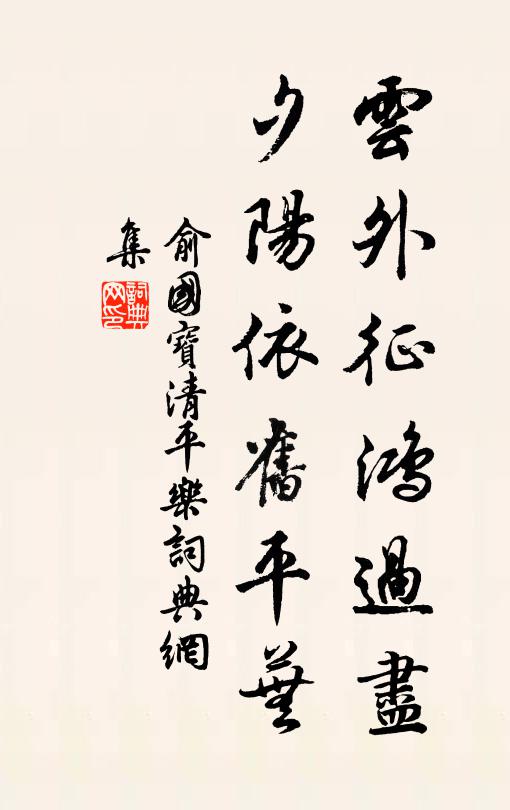 雲外征鴻過盡
夕陽依舊平蕪
俞國寶清平樂詞典網
集
詞典
网印